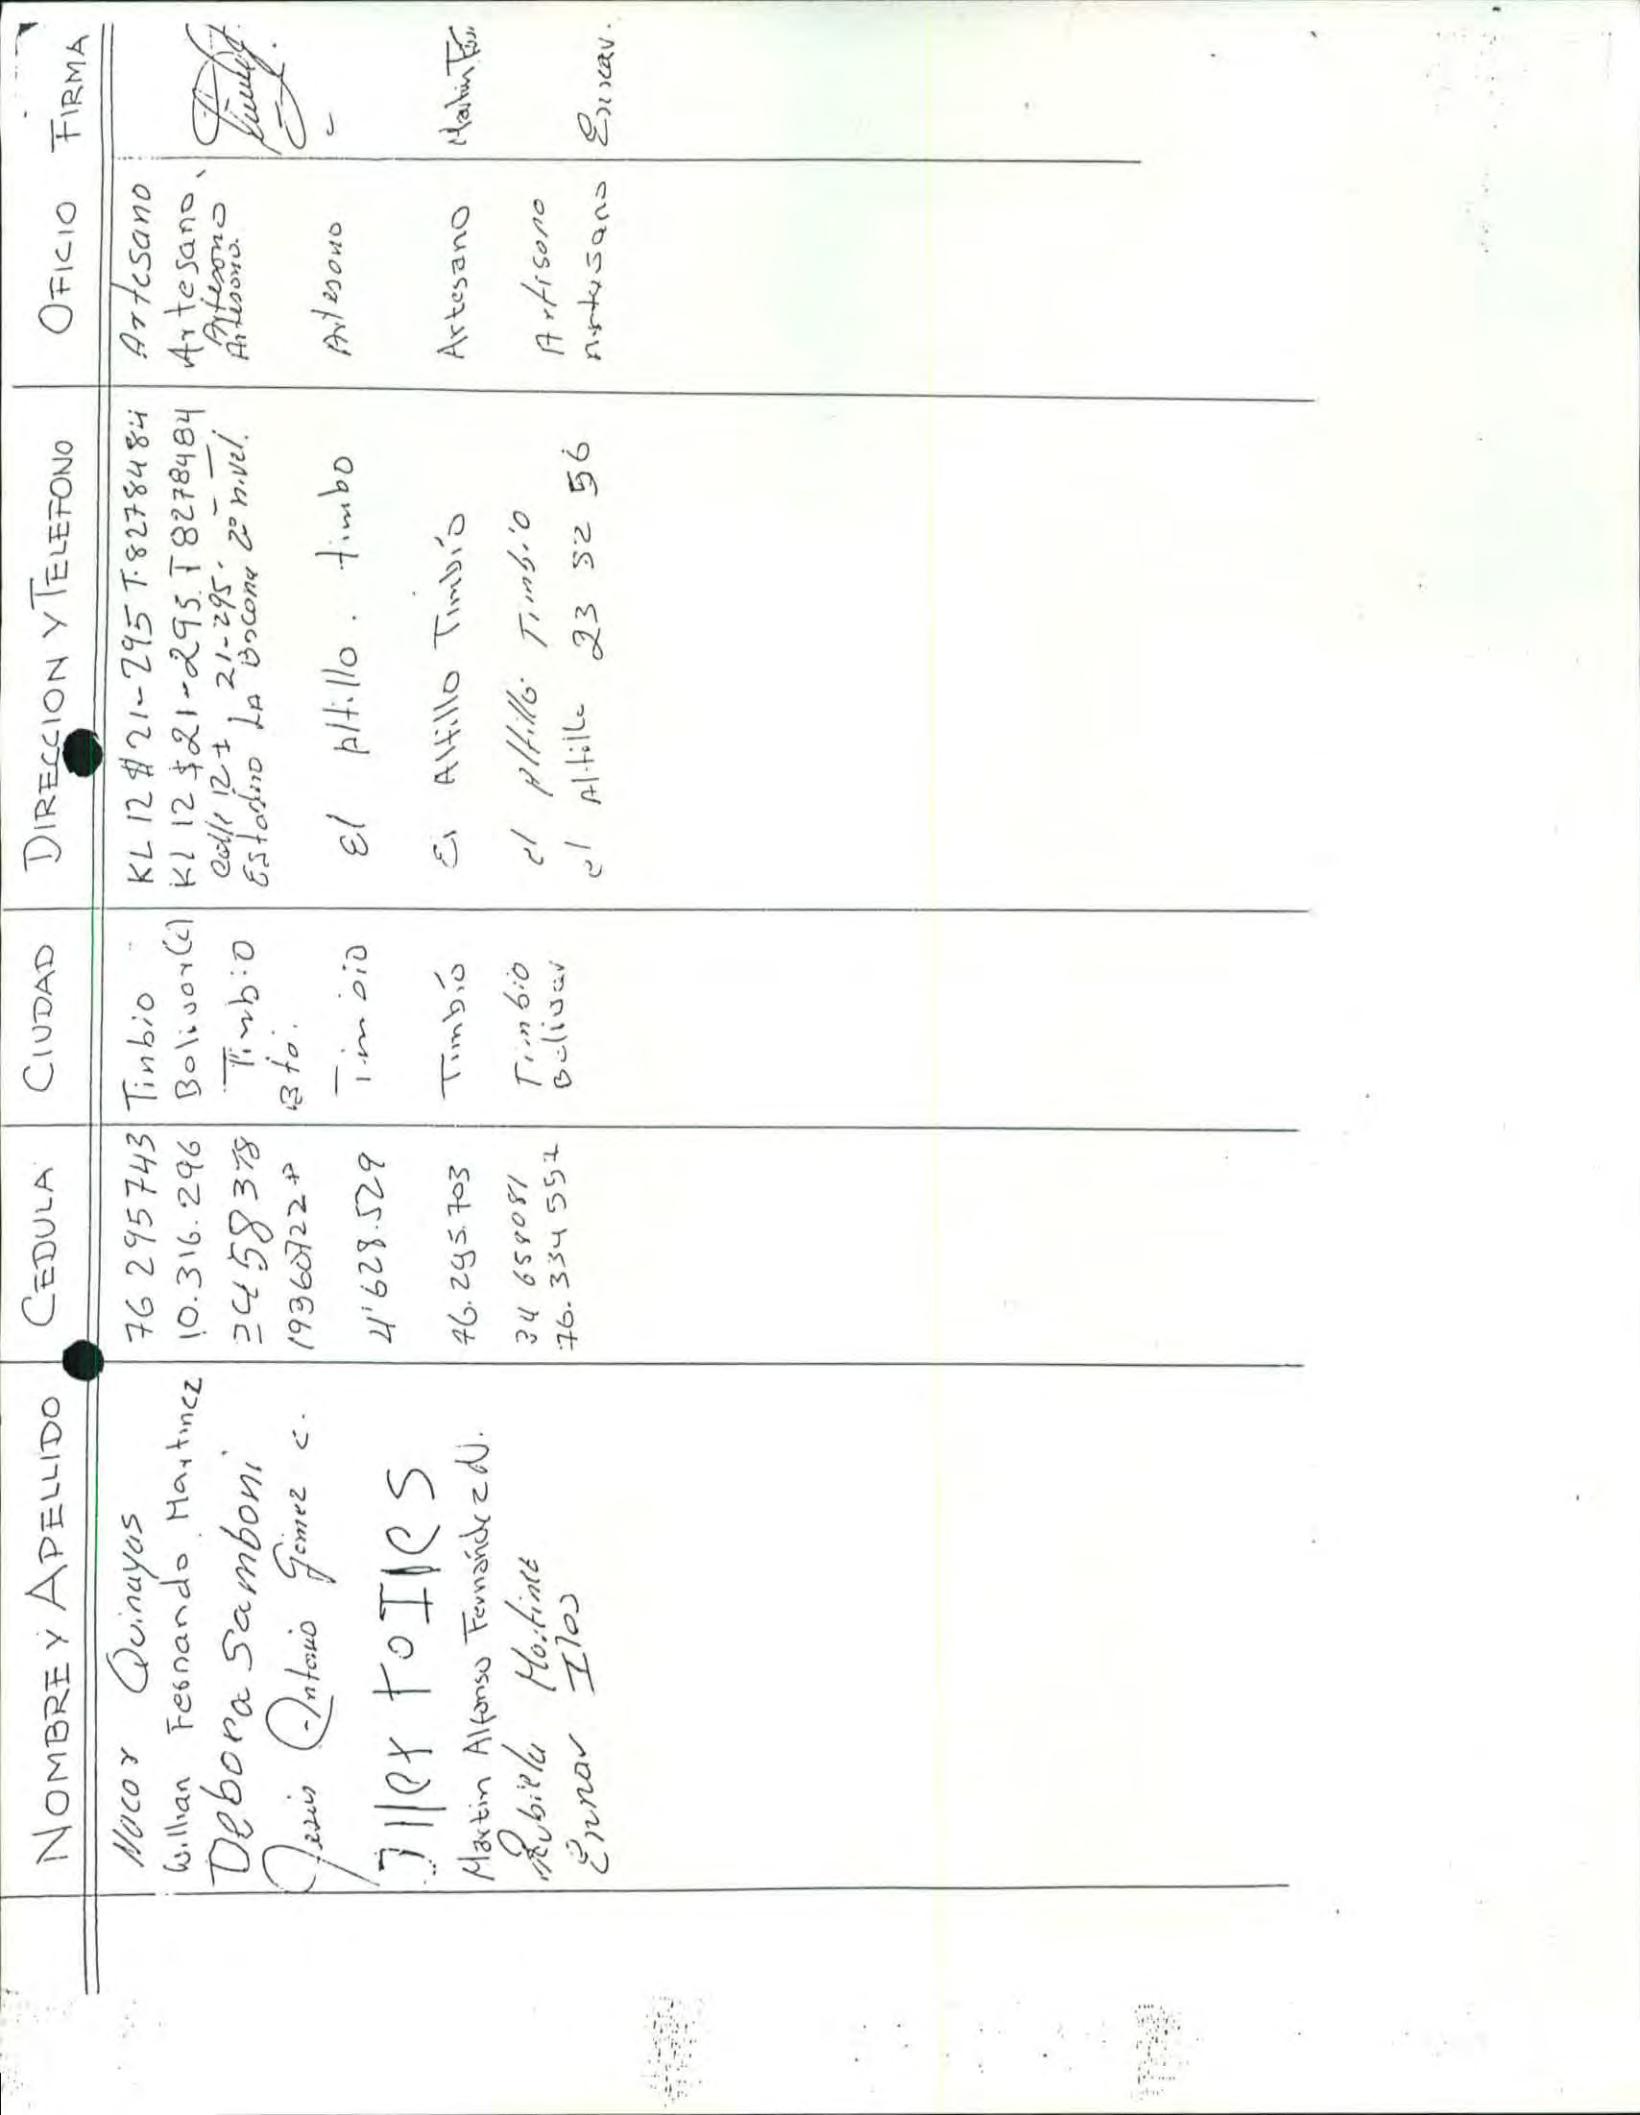 NOMBRE Y APELLIDO CEDULA CIUDAD DIRECCION Y TELEFONO OFICIO FIRMA
Nacor Quinayas 76 295743 Timbio KL 12 # 21-295 T.8278484 Artesano
Willian Fernando Martinez 10.316.296 Bolivar(c) KL 12 # 21-295 T 8278484 Artesano
Debora Samboni Timbio Calle 12 # 21-295. Artesano
Jesus Antonio Gomez C. Bto. Estadero La Bocana 2º nivel. Artesano.
4'628.529 Timbio El Altillo. timbo Artesano
Martin Alfonso Fernández N. 76.295.703 Timbío El Altillo Timbío Artesano Martin
Rubiela Martinez 34 658081 Timbio el Altillo Timbio Artisano
Ennar 76.334552 Bolivar el Altillo 23 32 56 Artesano